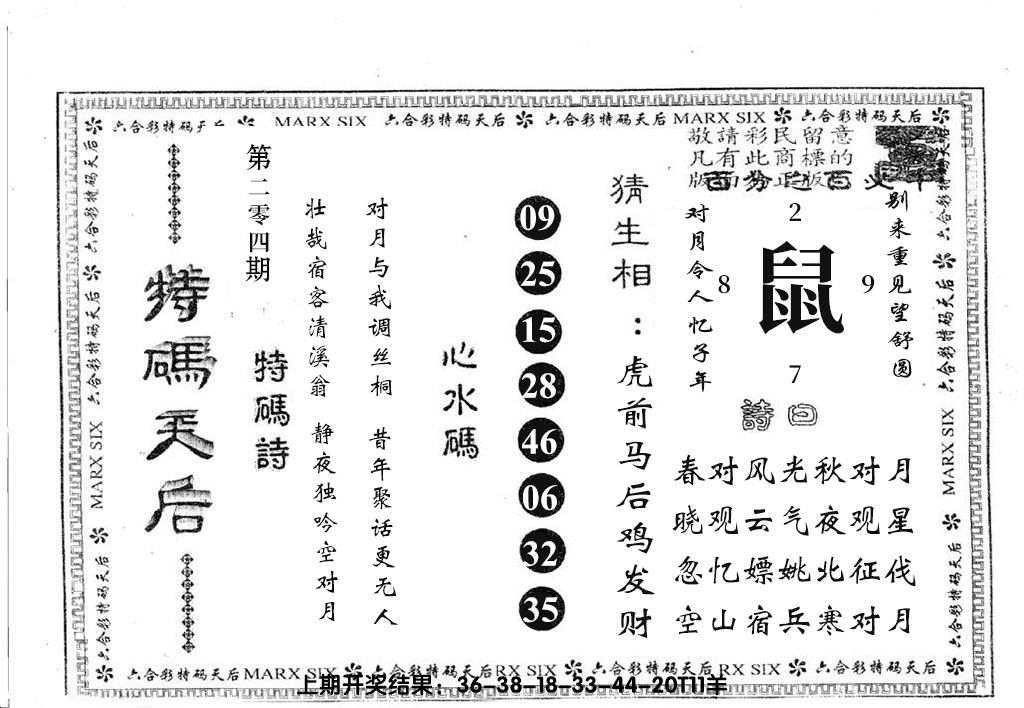 六合彩特码天后 MARX SIX 六合彩特码天后 六合彩特码天后 MARX SIX 六合彩特码天后
敬請彩民留意
凡有此商標的
版面為正版
别来重见望舒圆
2
8 鼠 9
7
对月令人忆子年
詩曰
春对风光秋对月
晓观云气夜观星
忽忆嫖姚北征伐
空山宿兵寒对月
猜生相：虎前马后鸡发财
09
25
15
28
46
06
32
35
心水碼
对月与我调丝桐 昔年聚话更无人
壮哉宿客清溪翁 静夜独吟空对月
特碼詩
第二零四期
特碼天后
六合彩特码天后 MARX SIX 六合彩特码天后
六合彩特码天后 六合彩特码天后 MARX SIX 六合彩特码天后
六合彩特码天后 MARX SIX 六合彩特码天后 RX SIX 六合彩特码天后 RX SIX 六合彩特码天后
上期开奖结果：36-38-18-33-44-20T11羊